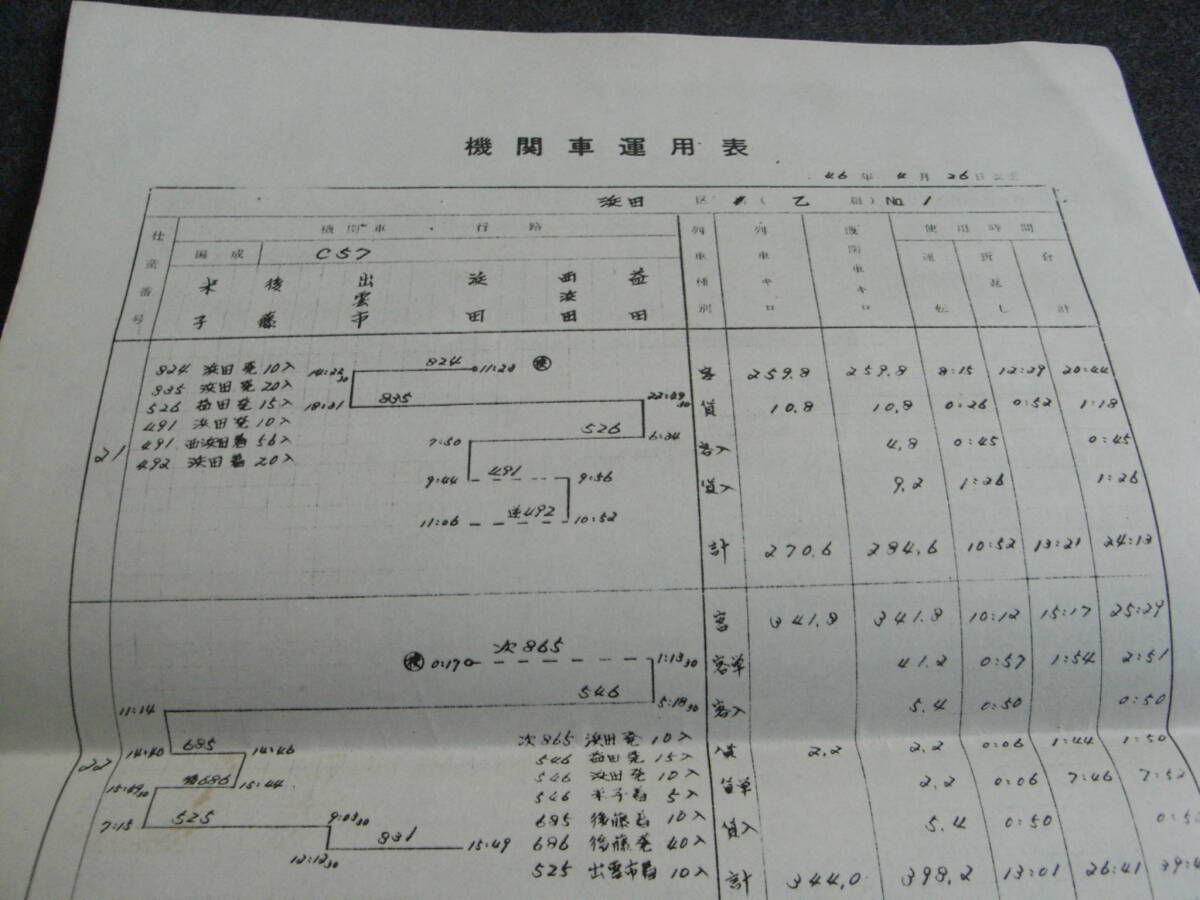 機関車運用表
46年 4月 26日
浜田 区 (乙 組) No 1
仕業番号 機関車 行路 列車種別 列車キロ 機関車キロ 使用時間
編成 C57 運転 折返し 合計
米子 後藤 出雲市 浜田 西浜田 益田
21
824 浜田発 10入
835 浜田発 20入
526 益田発 15入
491 浜田発 10入
491 西浜田着 56入
492 浜田着 20入
14:22 30 824 11:28
18:01 835 22:09 30
7:50 526 6:34
9:44 491 9:56
11:06 逆492 10:52
客 259.8 259.8 8:15 12:29 20:44
貨 10.8 10.8 0:26 0:52 1:18
客入 4.8 0:45 0:45
貨入 9.2 1:26 1:26
計 270.6 284.6 10:52 13:21 24:13
22
0:17 次865 1:13 30
11:14 546 5:18 30
14:40 685 14:46
15:49 30 686 15:44
7:15 525 9:03 30
12:12 30 831 15:49
次865 浜田発 10入
546 益田発 15入
546 浜田発 10入
546 米子着 5入
685 後藤着 10入
686 後藤発 40入
525 出雲市着 10入
客 341.8 341.8 10:12 15:17 25:29
客単 41.2 0:57 1:54 2:51
客入 5.4 0:50 0:50
貨 2.2 2.2 0:06 1:44 1:50
貨単 2.2 0:06 7:46 7:52
貨入 5.4 0:50
計 344.0 398.2 13:01 26:41